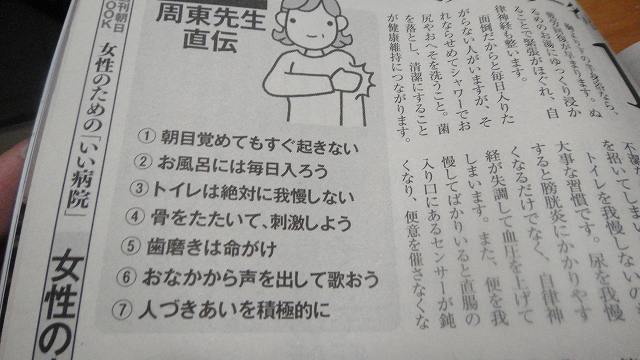 周東先生
直伝
① 朝目覚めてもすぐ起きない
② お風呂には毎日入ろう
③ トイレは絶対に我慢しない
④ 骨をたたいて、刺激しよう
⑤ 歯磨きは命がけ
⑥ おなかから声を出して歌おう
⑦ 人づきあいを積極的に
刊朝日
OOK
女性のための「いい病院」
女性の
るめのお湯にゆっくり浸か
ることで緊張がほぐれ、自
律神経も整います。
面倒だからと毎日入りた
がらない人がいますが、そ
れならせめてシャワーでお
尻やおへそを洗うこと。歯
を落とし、清潔にすること
が健康維持につながります。
を招いてしまい
トイレを我慢しないの
大事な習慣です。尿を我慢
すると膀胱炎にかかりやす
くなるだけでなく、自律神
経が失調して血圧を上げて
しまいます。また、便を我
慢してばかりいると直腸の
入り口にあるセンサーが鈍
くなり、便意を催さなくな